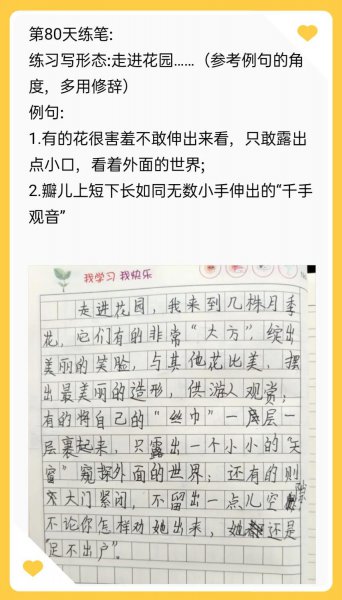 第80天练笔:
练习写形态:走进花园……（参考例句的角
度，多用修辞）
例句:
1.有的花很害羞不敢伸出来看，只敢露出
点小口，看着外面的世界;
2.瓣儿上短下长如同无数小手伸出的“千手
观音”
我学习 我快乐
走进花园，我来到几株月季
花，它们有的非常“大方”，绽出
美丽的笑脸，与其他花比美，摆
出最美丽的造形，供游人观赏；
有的将自己的“丝巾”一层一
层裹起来，只露出一个小小的“天
窗”窥探外面的世界；还有的则
大门紧闭，不留出一点儿空隙
不论你怎样劝她出来，她都还是
“足不出户”。